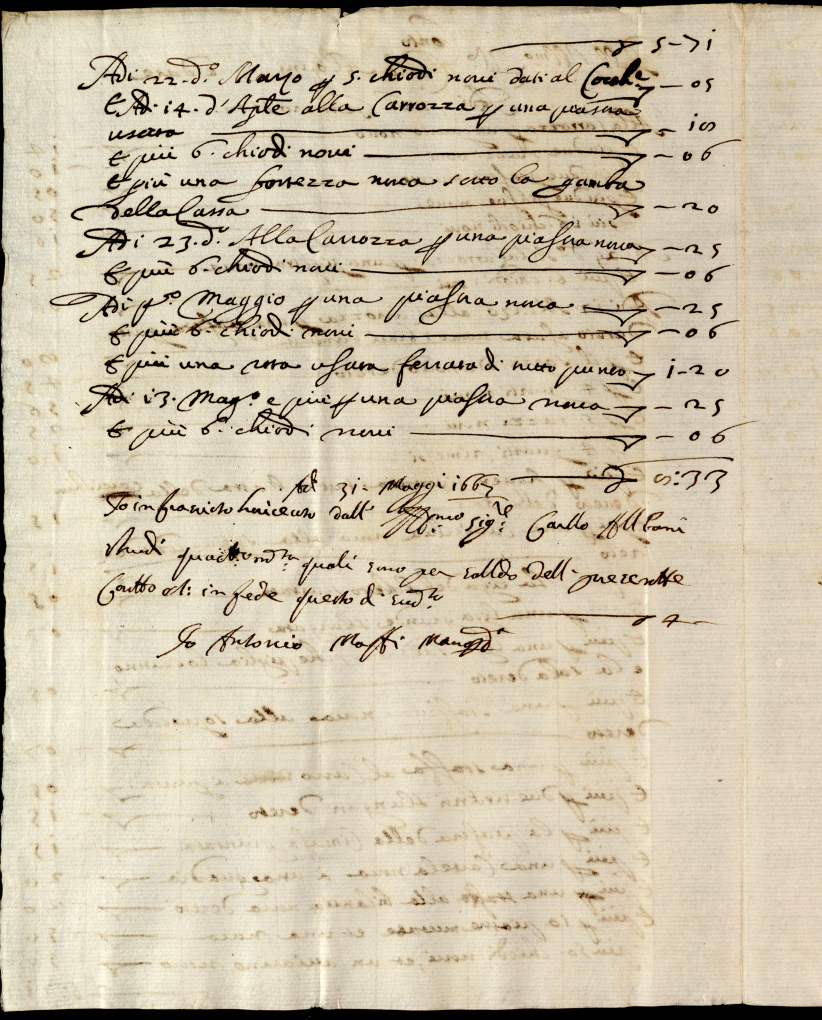 5-71
Adi 22. d.º Marzo p 5. chiodi novi dati al Coche.º -05
E Adi 14. d'Aple alla Carrozza p una piastra
usata -10
E più 6. chiodi novi -06
E più una fortezza nova sotto la gamba
della Cassa -20
Adi 23. d.º Alla Carrozza p una piastra nova -25
E più 6. chiodi novi -06
Adi p.º Maggio p una piastra nova -25
E più 6. chiodi novi -06
E più una rota usata ferrata di tutto punto 1-20
Adi 13. Mag.º e più p una piastra nova -25
E più 6. chiodi novi -06
Adi 31. Maggi 1667 8:33
Io infrascritto ho riceuto dall' Ill.mo Sig.re Carllo Allbani
schudi quactro m.ta quali sono per salldo dell presentte
Contto et: in fede questo di sud.to
4
Io Antonio Maffi Mano